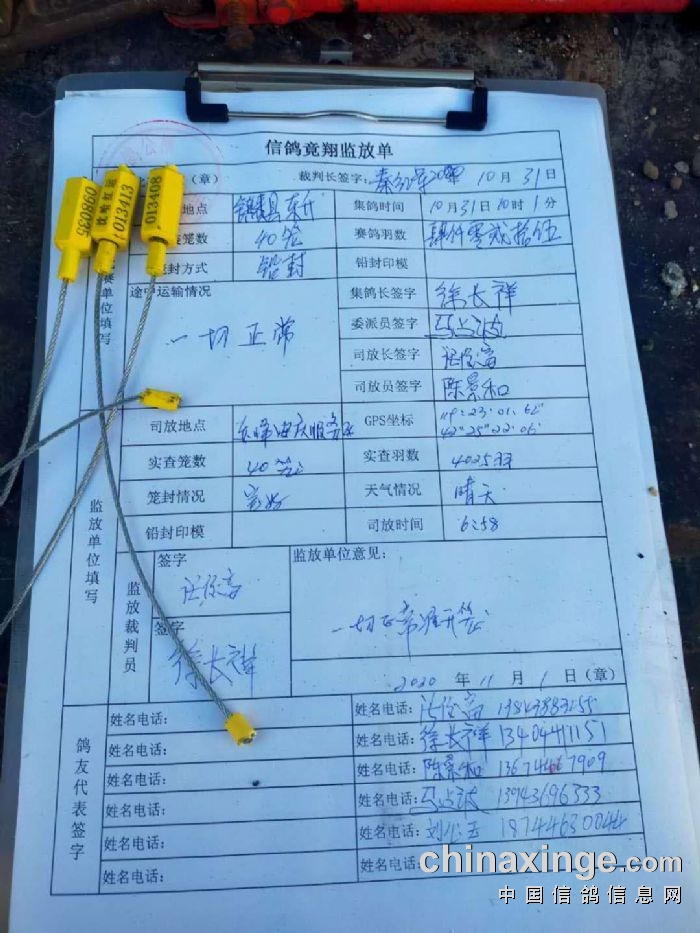 信鸽竟翔监放单
（章） 裁判长签字： 10月31日
地点 东升 集鸽时间 10月31日10时1分
笼数 40笼 赛鸽羽数 肆仟零贰拾伍
封方式 铅封 铅封印模
途中运输情况 一切正常 集鸽长签字 徐长祥
委派员签字 马占波
司放长签字
司放员签字 陈景和
赛单位填写
司放地点 GPS坐标
实查笼数 40笼 实查羽数 4025羽
笼封情况 完好 天气情况 晴天
铅封印模 司放时间 6:58
监放单位填写
监放裁判员
签字
签字 徐长祥
监放单位意见：
一切正常准开笼
2020年11月1日（章）
鸽友代表签字
姓名电话： 姓名电话：
姓名电话： 姓名电话：徐长祥
姓名电话： 姓名电话：陈景和
姓名电话： 姓名电话：马占波 13943696333
姓名电话： 姓名电话： 18744630044
姓名电话： 姓名电话：
090035
沈哈红运 013413
013408
chinaxinge.com
中国信鸽信息网